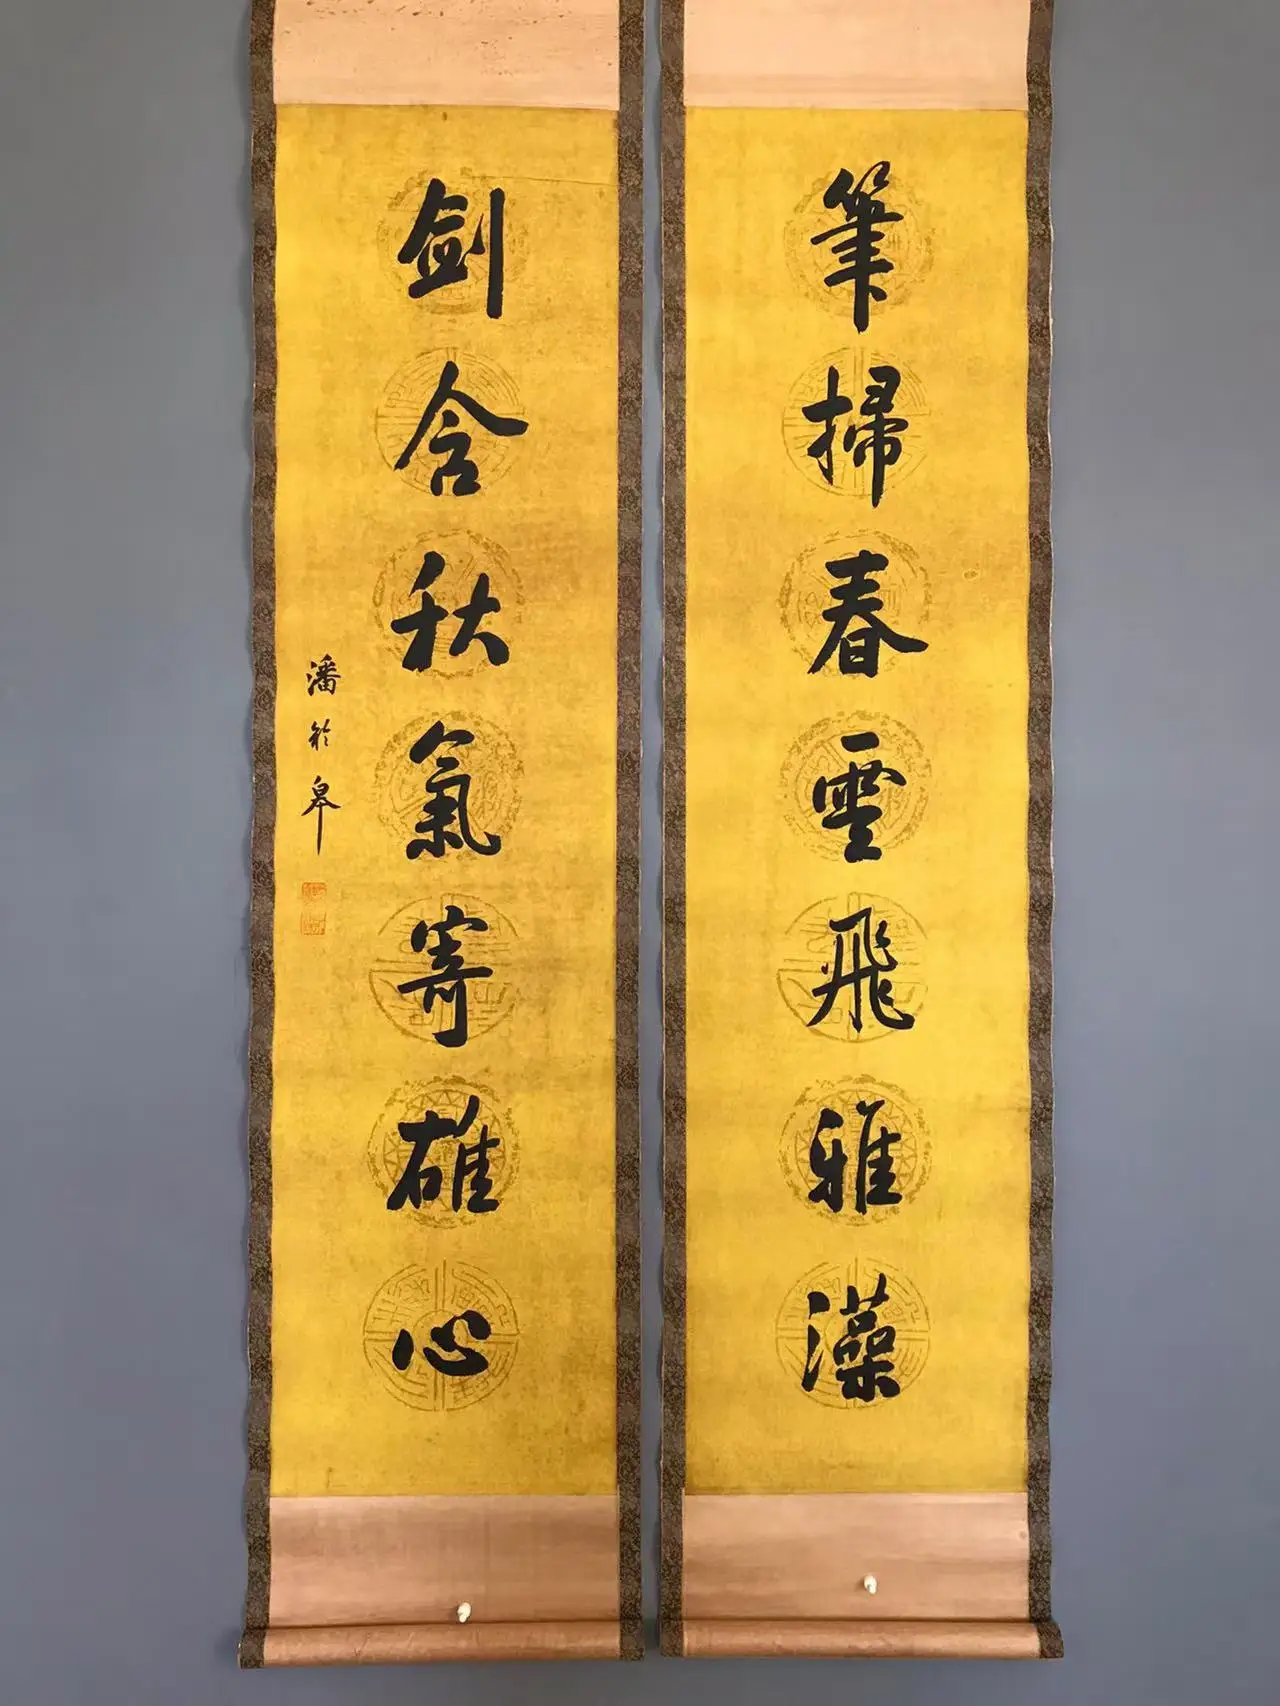 筆掃春雲飛雅藻
劍含秋氣寄雄心
潘齡皋